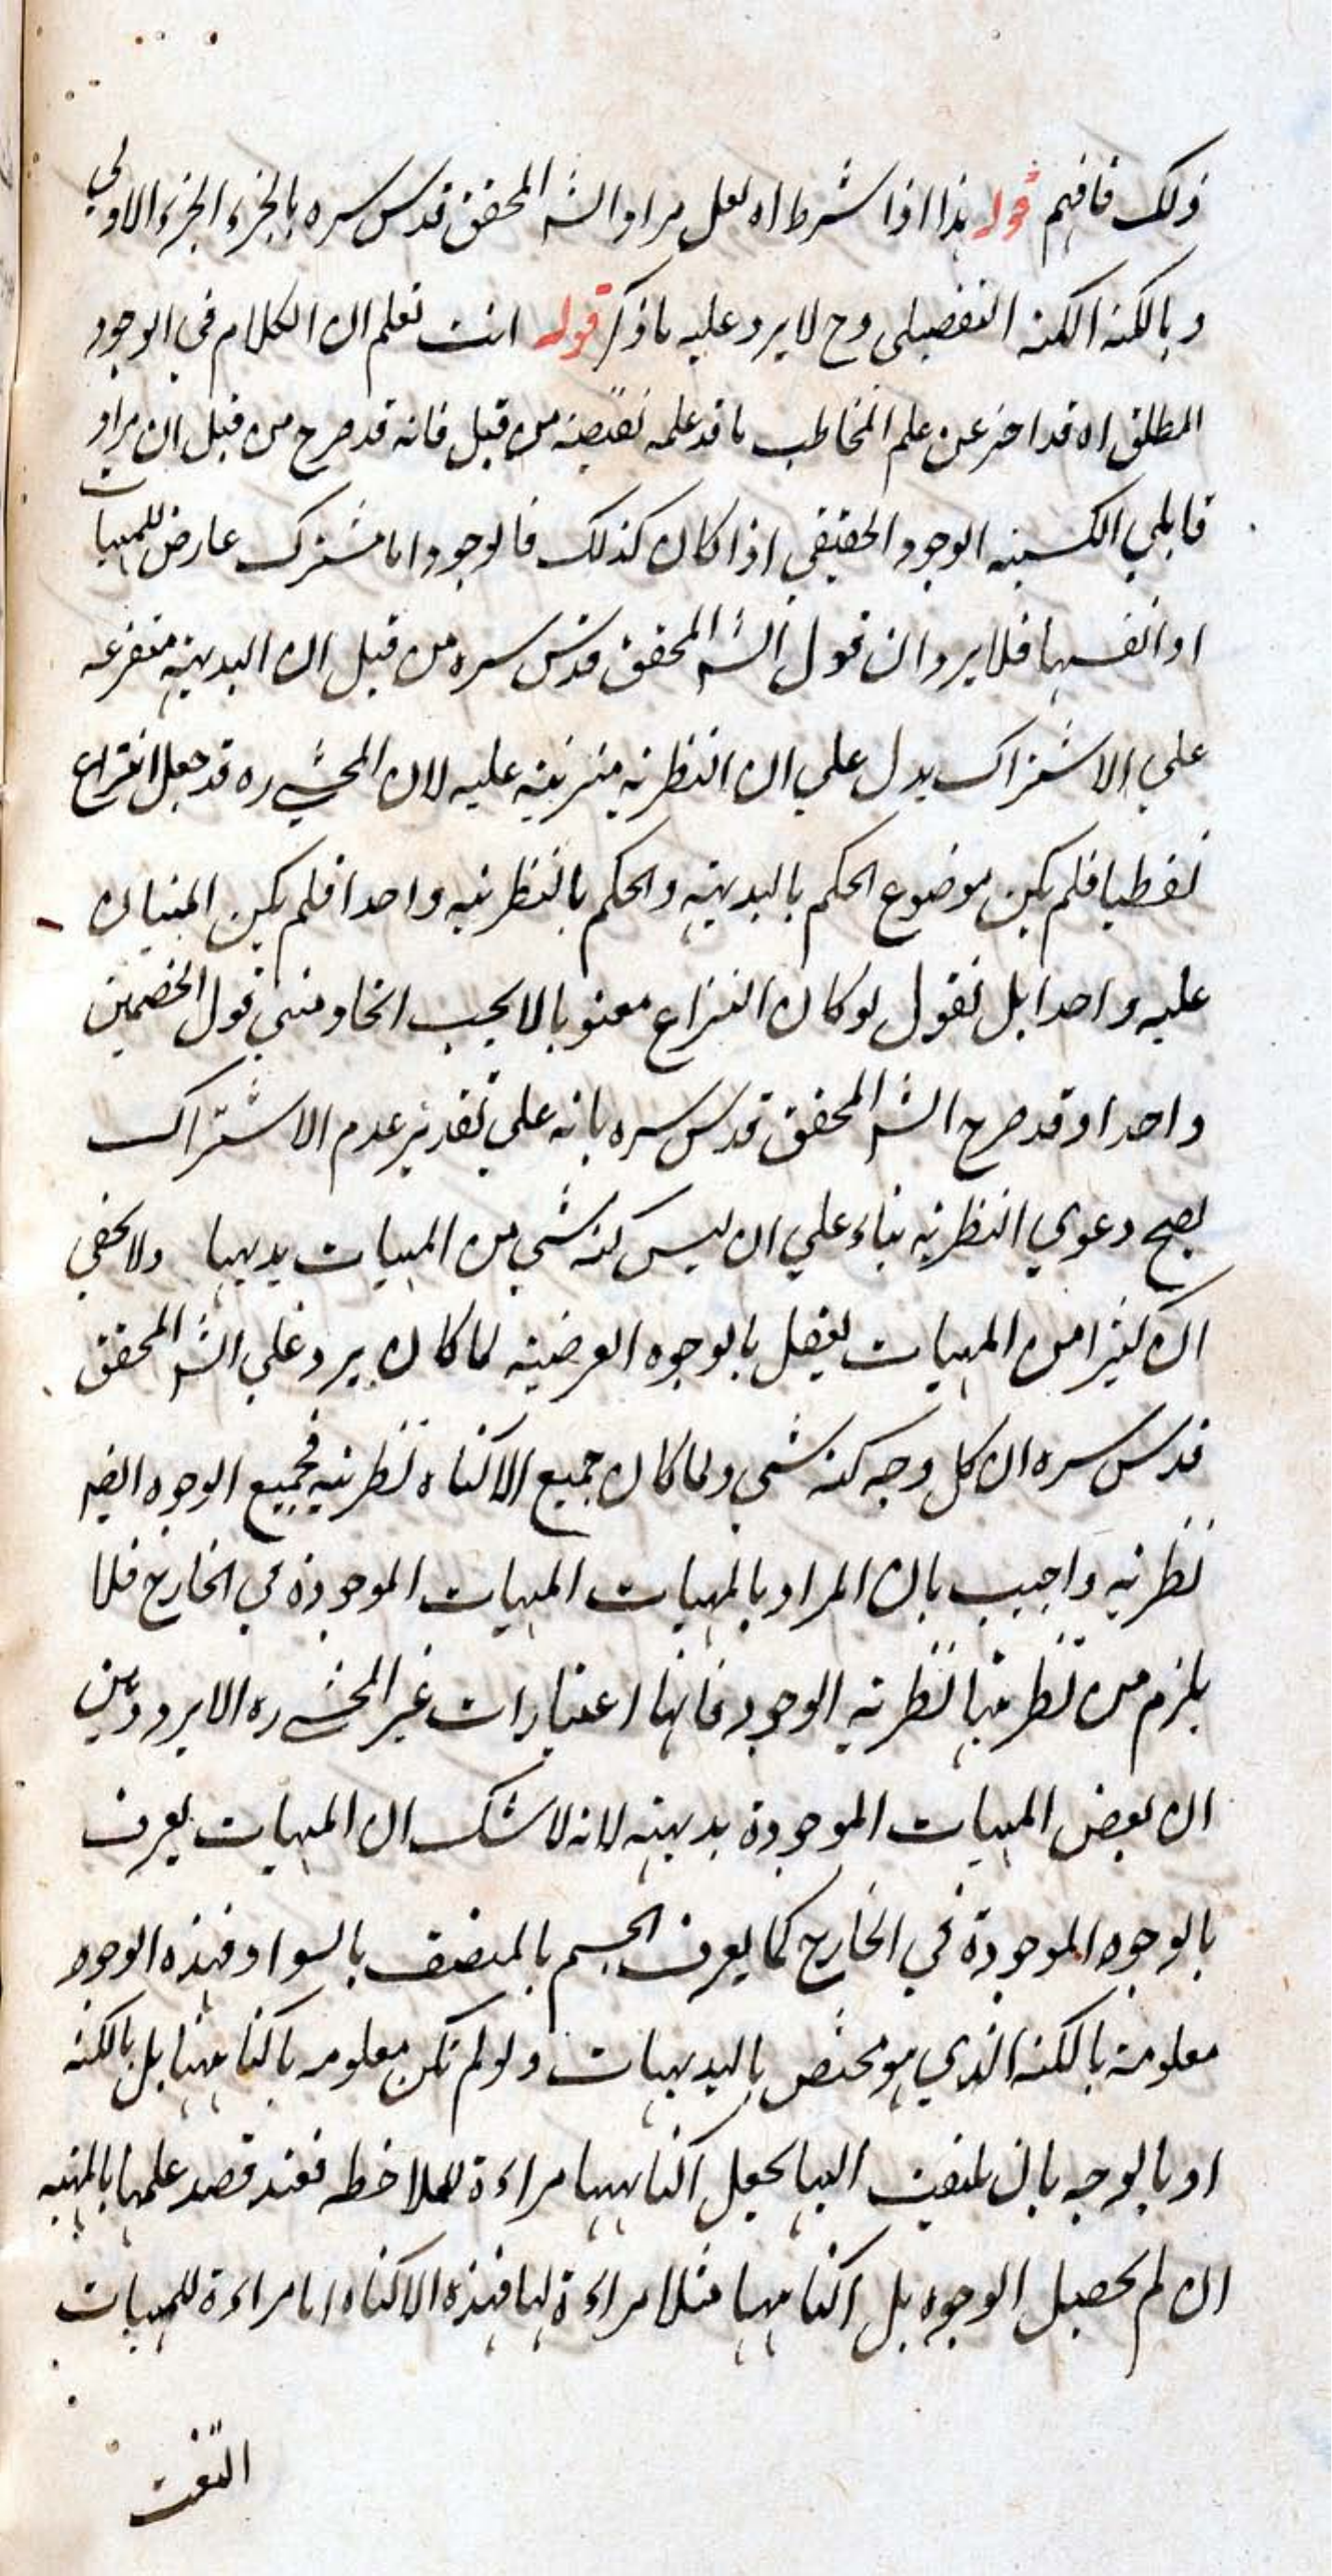 ذلك فافهم قوله هذا اذا شرط اه لعل مراد الشه المحقق قدس سره بالجزء الجزء الاولي
وبالكنه الكنه التفصيلي وح لا يرد عليه ما ذكر قوله انت تعلم ان الكلام في الوجود
المطلق اه قد اخبر عن علم المخاطب ما قد علمه نقيضه من قبل فانه قد صرح من قبل ان مراد
قابلي الكسبيه الوجود الحقيقي اذا كان كذلك فالوجود اما مشترك عارض للمهيات
او انفسها فلا يرد ان قول الشه المحقق قدس سره من قبل ان البديهية متفرعه
علي الاشتراك يدل علي ان النظريه مترتبة عليه لان المحشي ره قد جعل النزاع
لفظيا فلم يكن موضوع الحكم بالبديهية والحكم بالنظريه واحدا فلم يكن المبنيان
عليه واحدا بل نقول لو كان النزاع معنويا لا يجب اتحاد مبني قول الخصمين
واحدا وقد صرح الشه المحقق قدس سره بانه علي تقدير عدم الاشتراك
يصح دعوي النظريه بناء علي ان ليس كنه شي من المهيات بديهيا ولا يخفي
ان كثيرا من المهيات يعقل بالوجوه العرضيه لما كان يرد علي الشه المحقق
قدس سره ان كل وجه كنه شي ولما كان جميع الاكناه نظريه فجميع الوجوه ايضه
نظريه واجيب بان المراد بالمهيات المهيات الموجودة في الخارج فلا
يلزم من نظريتها نظريه الوجوه فانها اعتبارات غير المحشي ره الايرود بين
ان بعض المهيات الموجودة بديهيه لانه لا شك ان المهيات يعرف
بالوجوه الموجودة في الخارج كما يعرف الجسم بالمتصف بالسواد فهذه الوجوه
معلومة بالكنه الذي هو مختص بالبديهيات ولو لم تكن معلومه باكناهها بل بالكنه
او بالوجه بان يلتفت اليها بجعل اكناهها مراءة للملاحظه فعند قصد علمها بالمهيه
ان لم يحصل الوجوه بل اكناهها مثلا مراءة لها فهذه الاكناه اما مراءة للمهيات
التفت